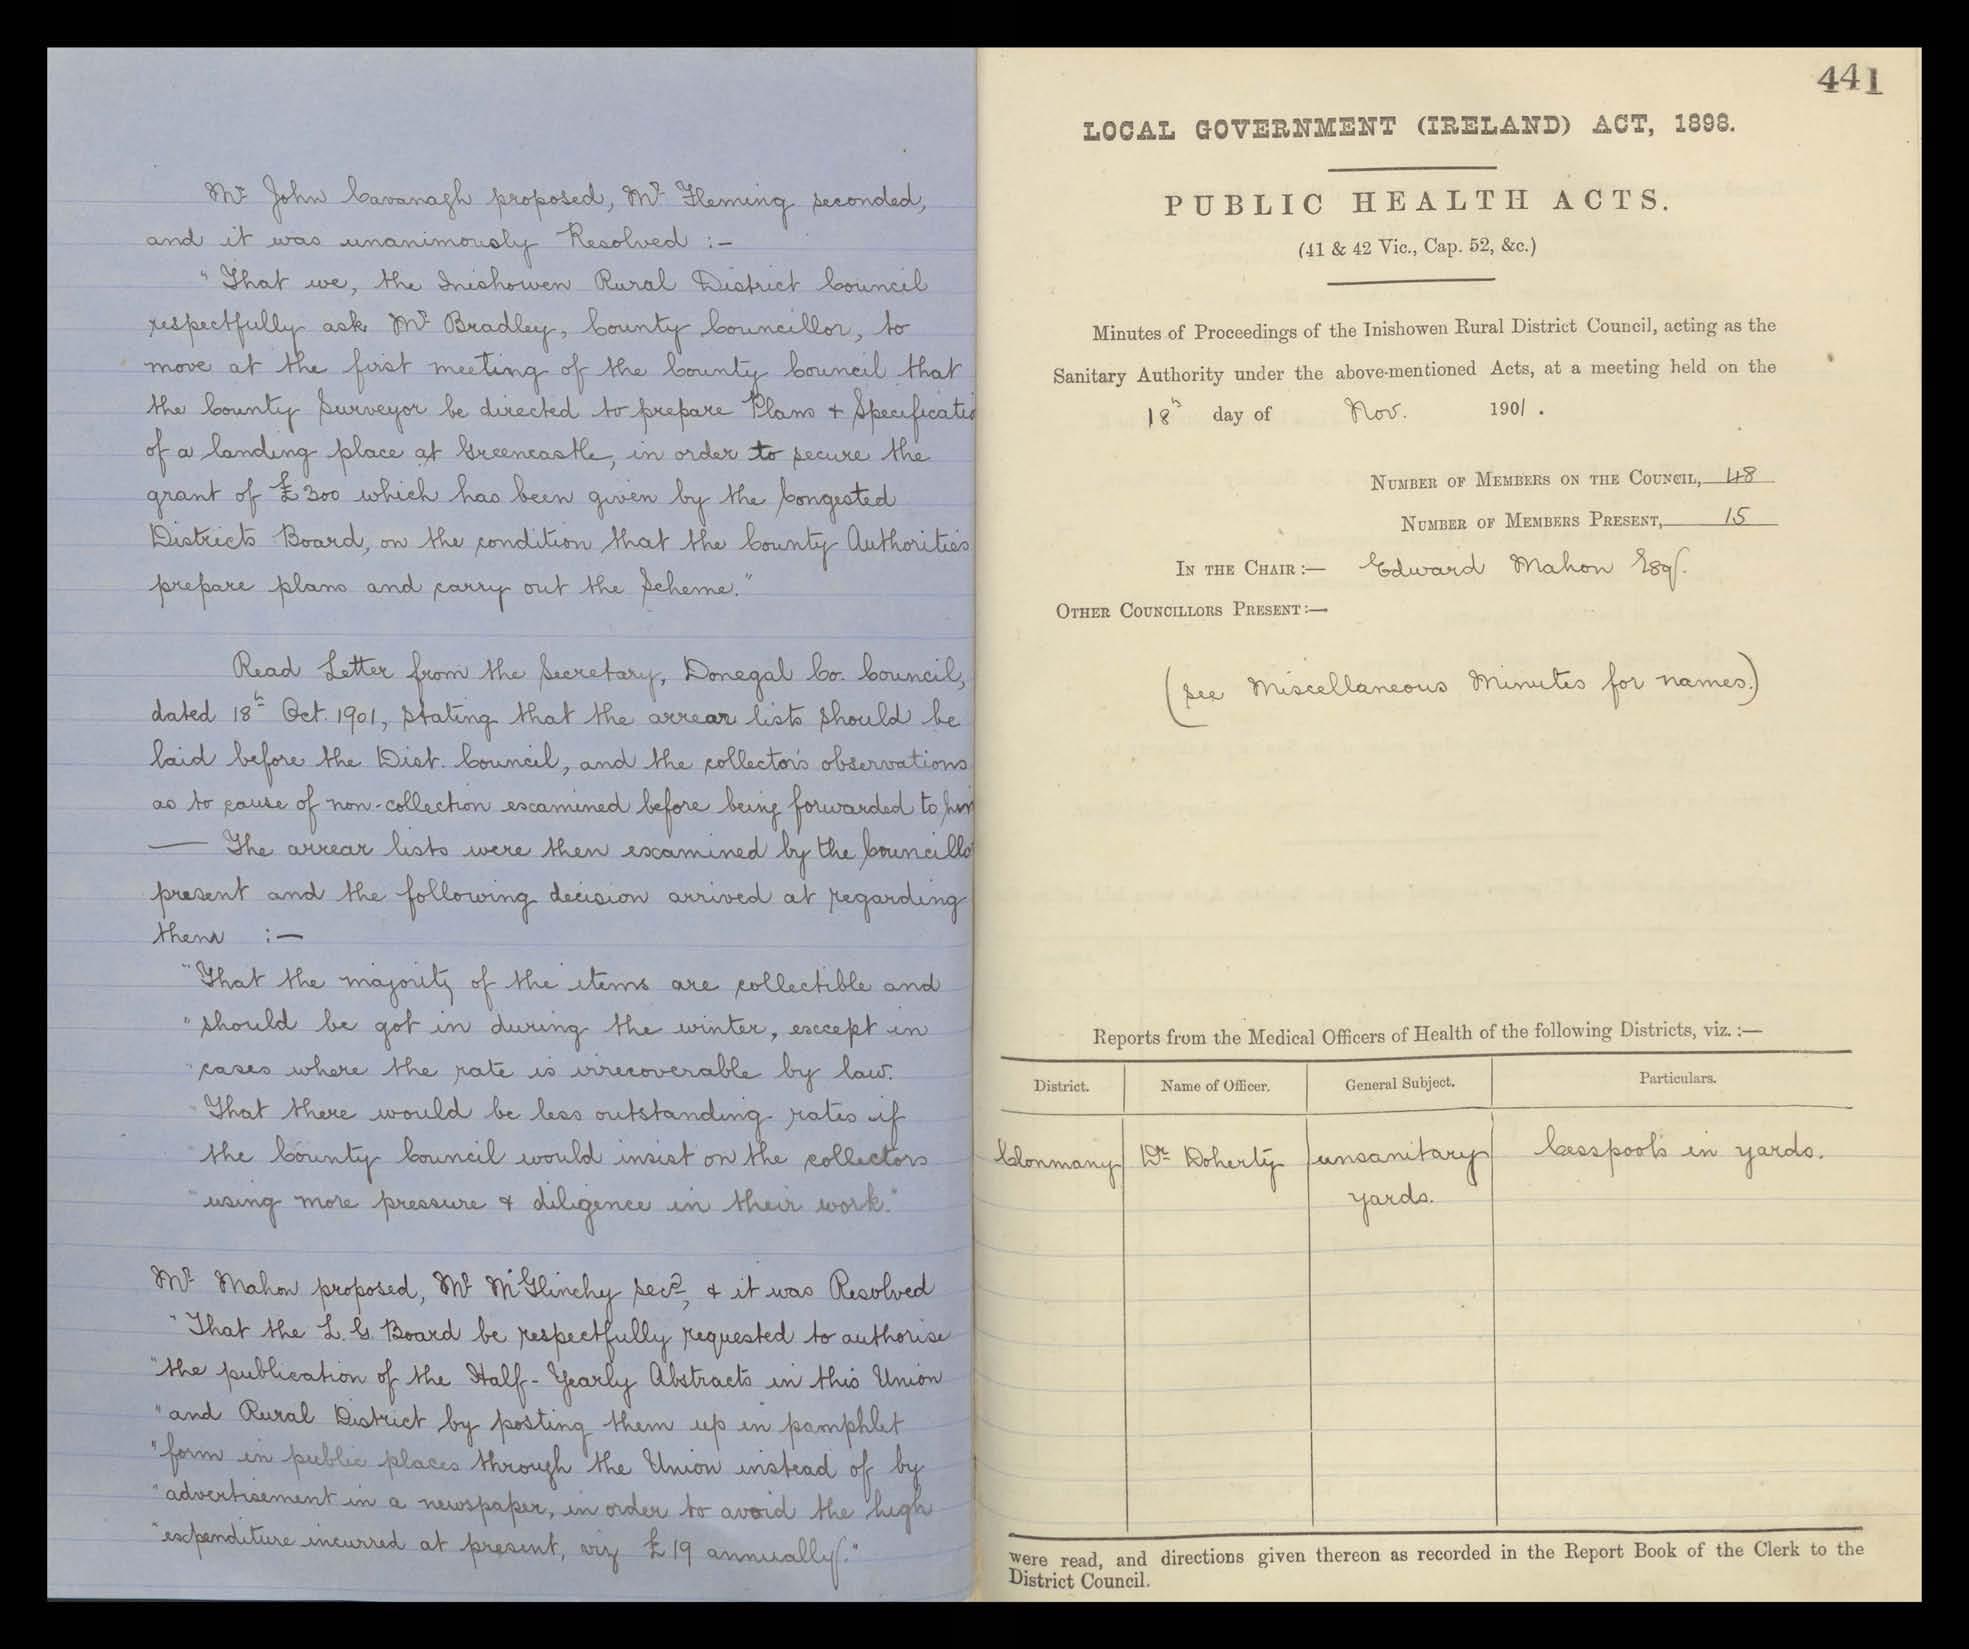 Mr John Cavanagh proposed, Mr Fleming seconded,
and it was unanimously Resolved :-
"That we, the Inishowen Rural District Council
respectfully ask Mr Bradley, County Councillor, to
move at the first meeting of the County Council that
the County Surveyor be directed to prepare Plans + Specificatio
of a landing place at Greencastle, in order to secure the
grant of £300 which has been given by the Congested
Districts Board, on the condition that the County Authorities
prepare plans and carry out the Scheme."
Read Letter from the Secretary, Donegal Co. Council,
dated 18th Oct. 1901, stating that the arrear lists should be
laid before the Dist. Council, and the collector's observations
as to cause of non-collection examined before being forwarded to him
— The arrear lists were then examined by the Councillo
present and the following decision arrived at regarding
them :—
"That the majority of the items are collectible and
"should be got in during the winter, except in
"cases where the rate is irrecoverable by law.
"That there would be less outstanding rates if
"the County Council would insist on the collectors
"using more pressure & diligence in their work."
Mr Mahon proposed, Mr McGlinchy secd, & it was Resolved
"That the L. G. Board be respectfully requested to authorise
"the publication of the Half-Yearly Abstracts in this Union
"and Rural District by posting them up in pamphlet
"form in public places through the Union instead of by
"advertisement in a newspaper, in order to avoid the high
"expenditure incurred at present, viz £19 annually."
441
LOCAL GOVERNMENT (IRELAND) ACT, 1898.
PUBLIC HEALTH ACTS.
(41 & 42 Vic., Cap. 52, &c.)
Minutes of Proceedings of the Inishowen Rural District Council, acting as the
Sanitary Authority under the above-mentioned Acts, at a meeting held on the
18th day of Nov. 1901.
NUMBER OF MEMBERS ON THE COUNCIL, 48
NUMBER OF MEMBERS PRESENT, 15
IN THE CHAIR :— Edward Mahon Esq.
OTHER COUNCILLORS PRESENT :—
(see Miscellaneous Minutes for names.)
Reports from the Medical Officers of Health of the following Districts, viz. :—
District. Name of Officer. General Subject. Particulars.
Clonmany Dr Doherty unsanitary Cesspools in yards.
yards.
were read, and directions given thereon as recorded in the Report Book of the Clerk to the
District Council.